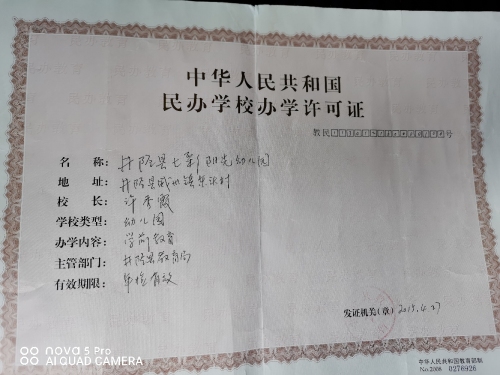 中华人民共和国
民办学校办学许可证
教民 号
名 称: 井陉县七彩阳光幼儿园
地 址: 井陉县威州镇
校 长: 许秀霞
学校类型: 幼儿园
办学内容: 学前教育
主管部门: 井陉县教育局
有效期限: 年检有效
发证机关(章) 2015.4.27
中华人民共和国教育部制
No.2008 0276926
nova 5 Pro
AI QUAD CAMERA